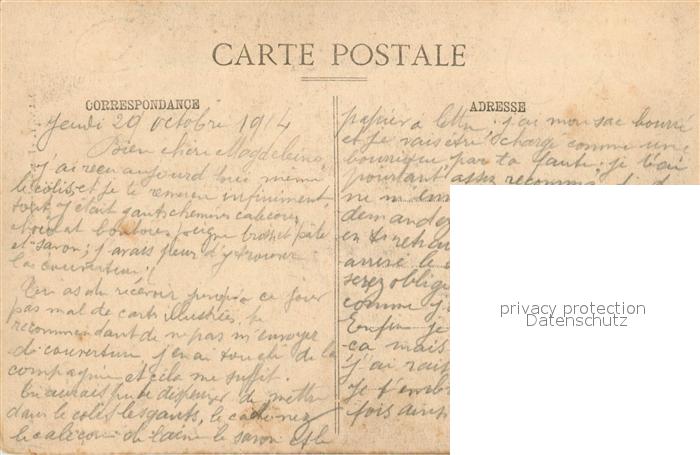 CARTE POSTALE
CORRESPONDANCE
Jeudi 29 octobre 1914
Bien chère Magdeleine,
j'ai reçu aujourd'hui même
le colis et je te remercie infiniment
tout y était gants chemises caleçons
chocolat boutons peigne brosse et pâte
et savon; j'avais peur d'y trouver
la couverture!
Tu as du recevoir jusqu'à ce jour
pas mal de cartes illustrées, je
recommandant de ne pas m'envoyer
de couverture j'en ai touché de la
compagnie et cela me suffit.
Tu aurais pu te dispenser de mettre
dans le colis les gants, le cache-nez
le caleçon de laine le savon et le
ADRESSE
papier à lettre; j'ai mon sac bourré
et je vais être chargé comme une
bourrique par ta faute; je t'avais
pourtant assez recommandé de
ne m'en
demande
en ti retrou
arrivé le
serez oblig
comme j
Enfin je
ça mais
j'ai rais
Je t'emb
fois ains
privacy protection
Datenschutz